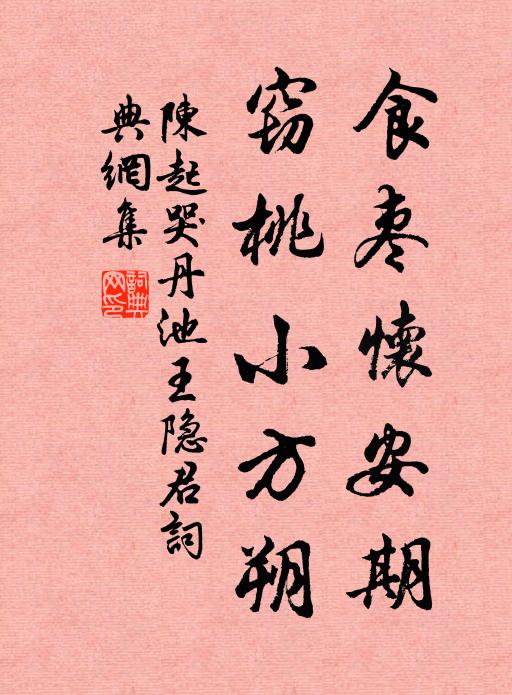 食枣懷安期
窃桃小方朔
陳起哭丹池王隐君詞
典網集
詞典
网印